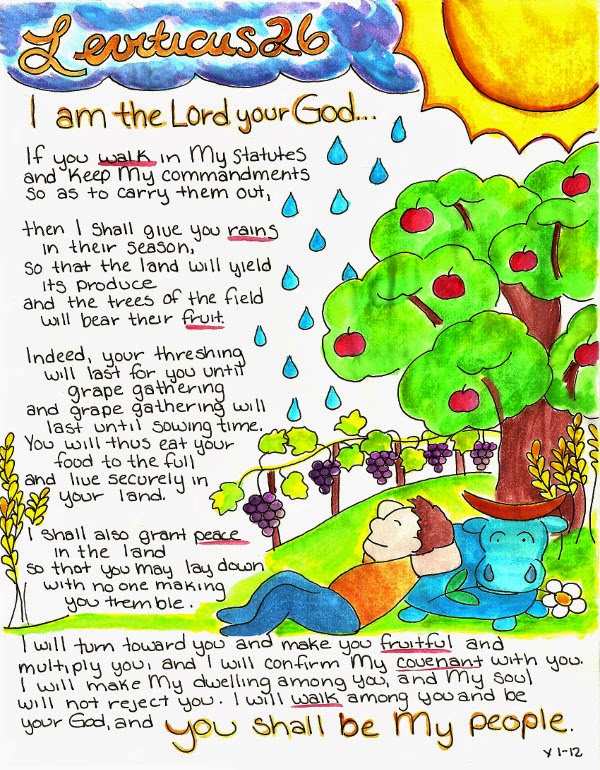 Leviticus 26
I am the Lord your God...
If you walk in My statutes
and keep My commandments
so as to carry them out,
then I shall give you rains
in their season,
so that the land will yield
its produce
and the trees of the field
will bear their fruit.
Indeed, your threshing
will last for you until
grape gathering
and grape gathering will
last until sowing time.
You will thus eat your
food to the full
and live securely in
your land.
I shall also grant peace
in the land
so that you may lay down
with no one making
you tremble.
I will turn toward you and make you fruitful and
multiply you, and I will confirm My covenant with you.
I will make My dwelling among you, and My soul
will not reject you. I will walk among you and be
your God, and you shall be My people.
v 1-12